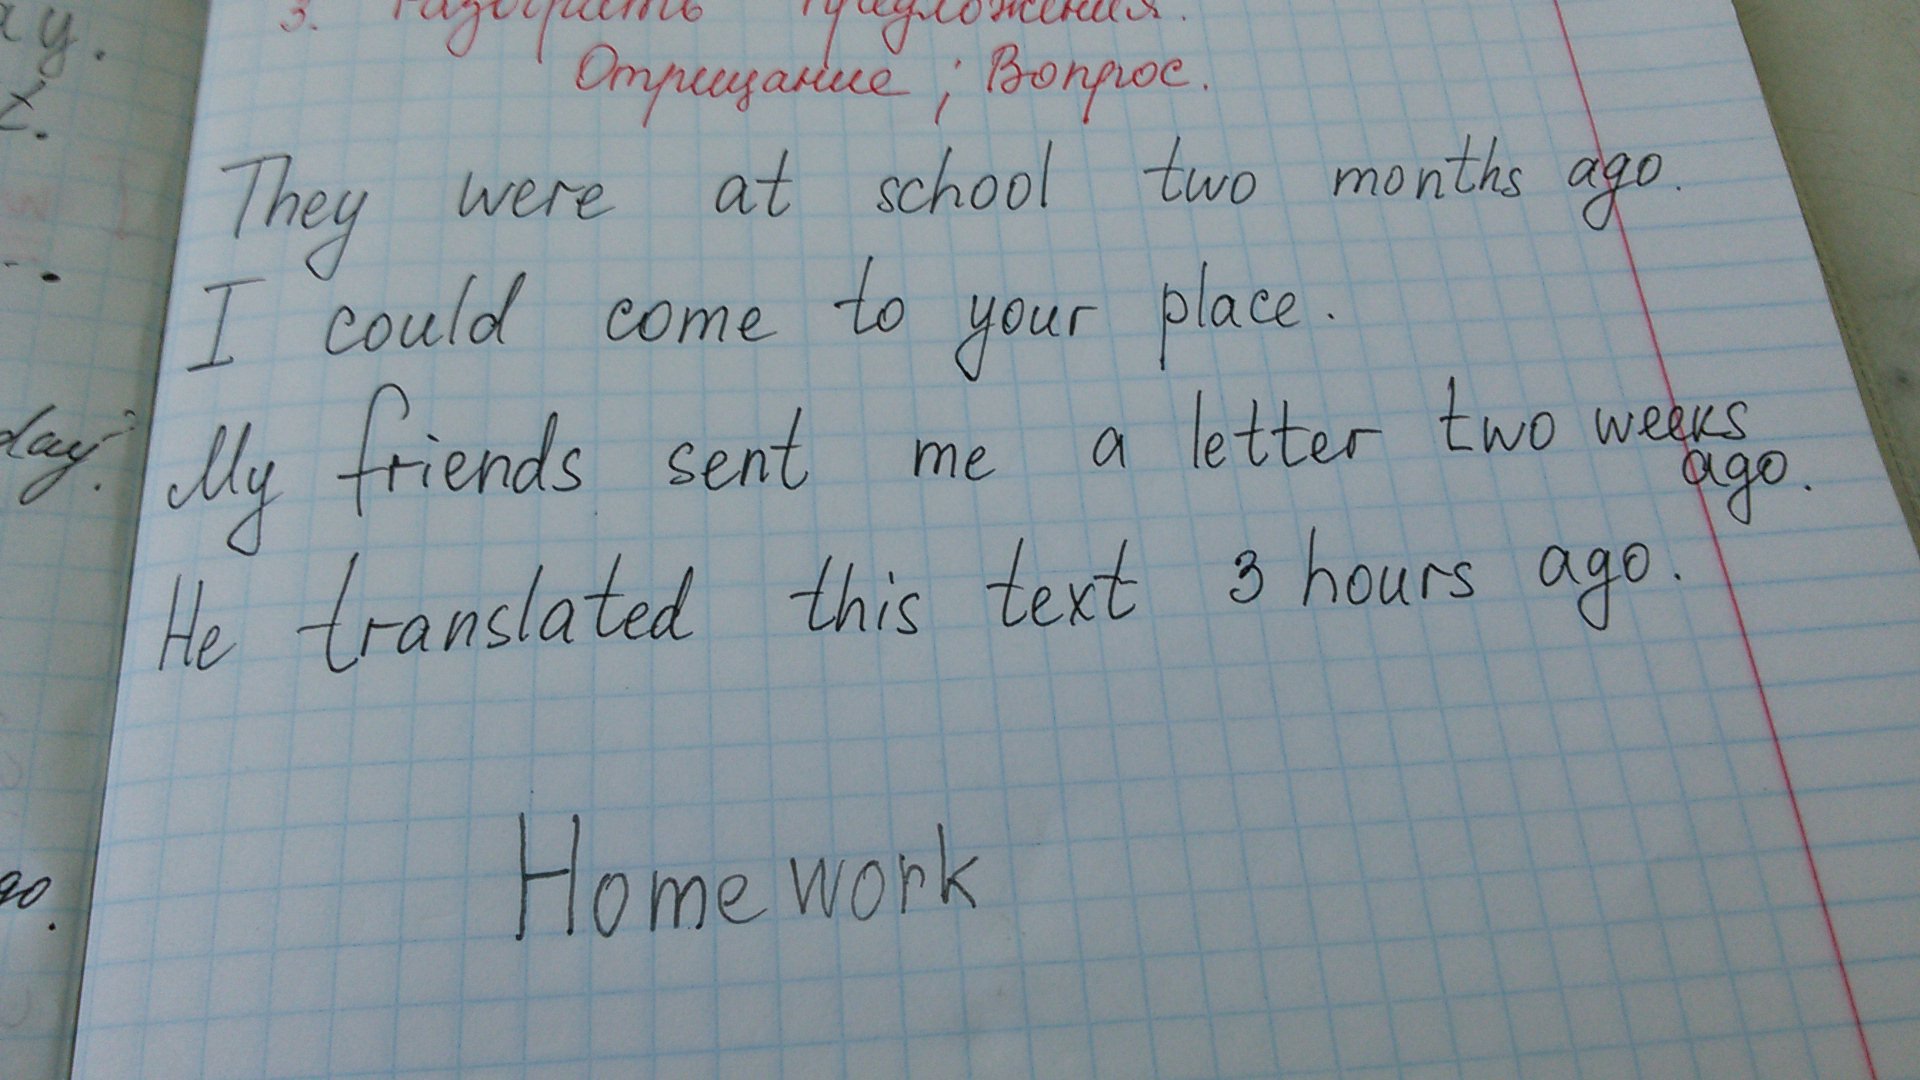 3. Разобрать предложения.
Отрицание ; Вопрос.
They were at school two months ago.
I could come to your place.
My friends sent me a letter two weeks
ago.
He translated this text 3 hours ago.
Home work